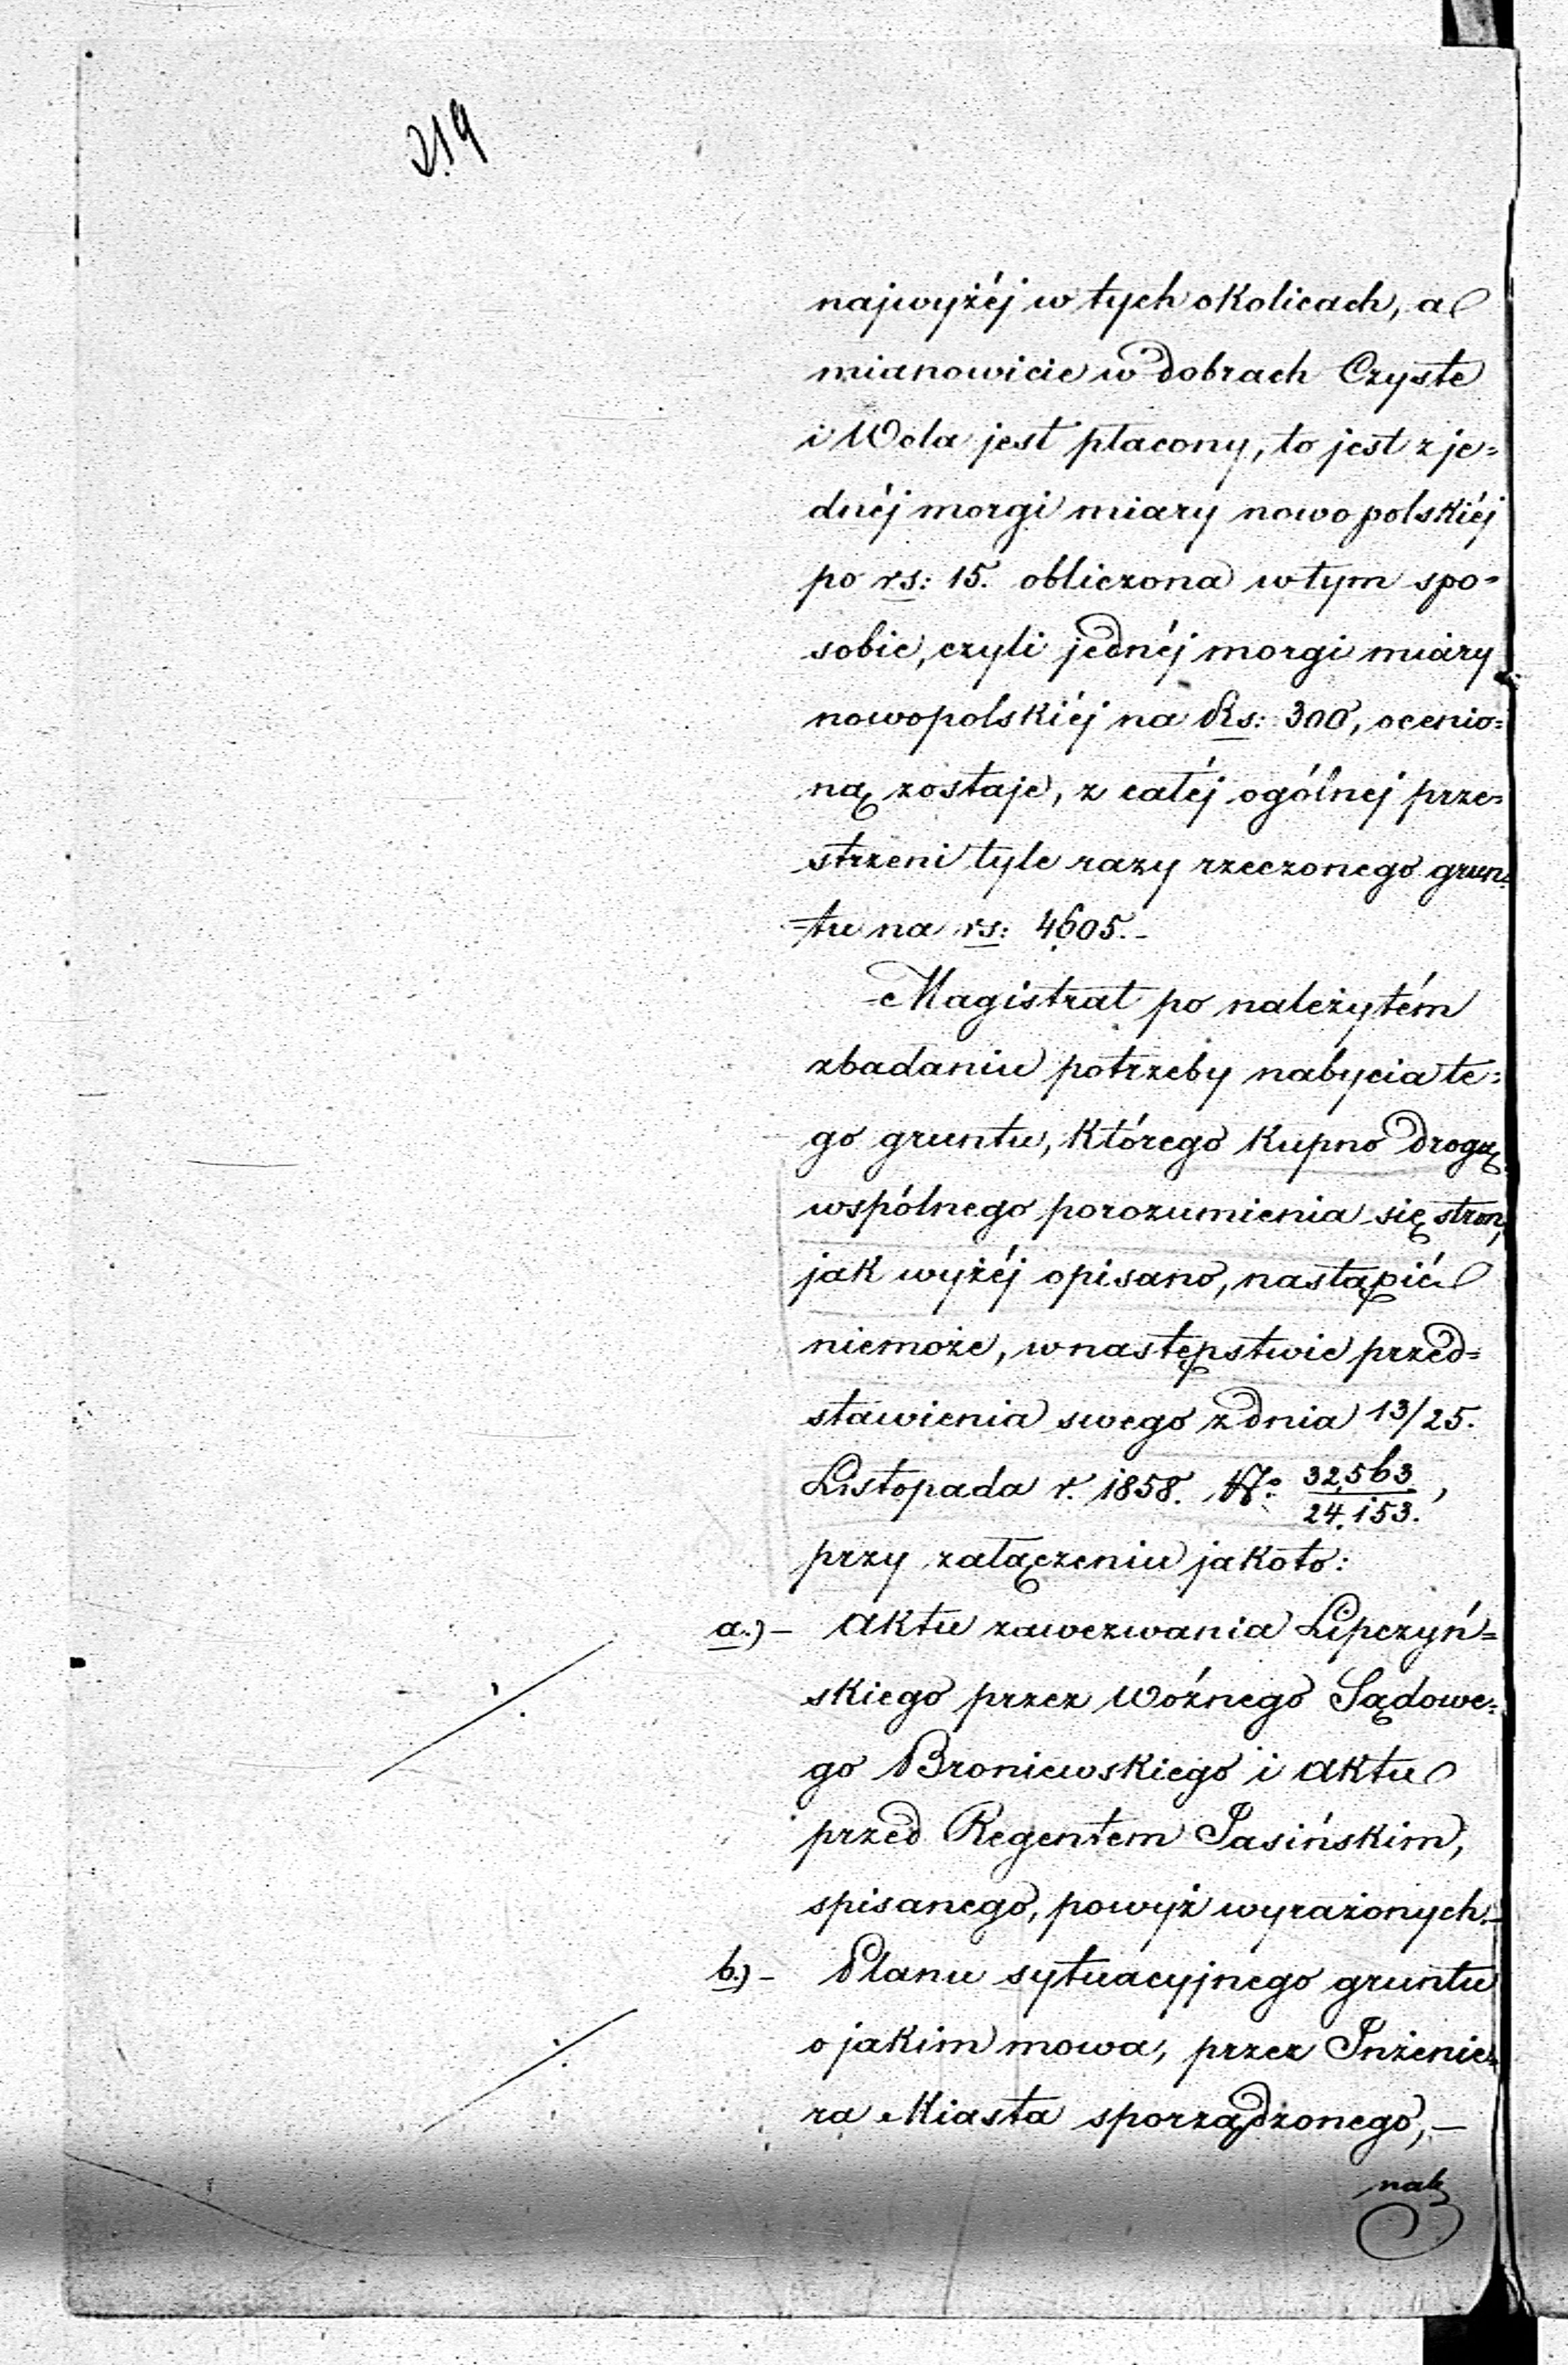 219
najwyżéj w tych okolicach, a
mianowicie w dobrach Czyste
i Wola jest płacony, to jest z je=
dnéj morgi miary nowo polskiéj
po rs: 15. obliczona w tym spo=
sobie, czyli jednéj morgi miary
nowopolskiéj na Rs: 300, ocenio=
ną zostaje, z całéj ogólnéj prze=
strzeni tyle razy rzeczonego grun=
=tu na rs: 4605.-
Magistrat po należytém
zbadaniu potrzeby nabycia te=
go gruntu, którego kupno drogą
wspólnego porozumienia się stron,
jak wyżéj opisano, nastąpić
niemoże, w następstwie przed=
stawienia swego z dnia 13/25.
Listopada r. 1858. No: 32,563/24,153.,
przy załączeniu jakoto:
a.)- Aktu zawezwania Lipczyń=
skiego przez Woźnego Sądowe=
go Broniewskiego i Aktu
przed Regentem Jasińskim,
spisanego, powyż wyrażonych.-
b.)- Planu sytuacyjnego gruntu
o jakim mowa, przez Inżenie=
ra Miasta sporządzonego,-
nak